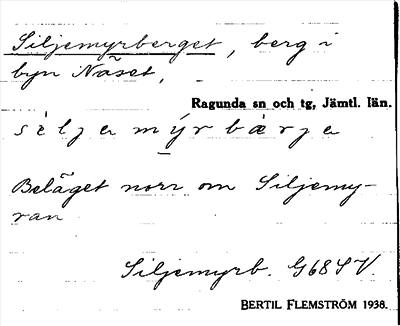 Siljemyrberget, berg i
byn Näset,
Ragunda sn och tg, Jämtl. län.
sìljemý̱rbærje
Beläget norr om Siljemy-
ran
Siljemyrb. G68SV.
BERTIL FLEMSTRÖM 1938.